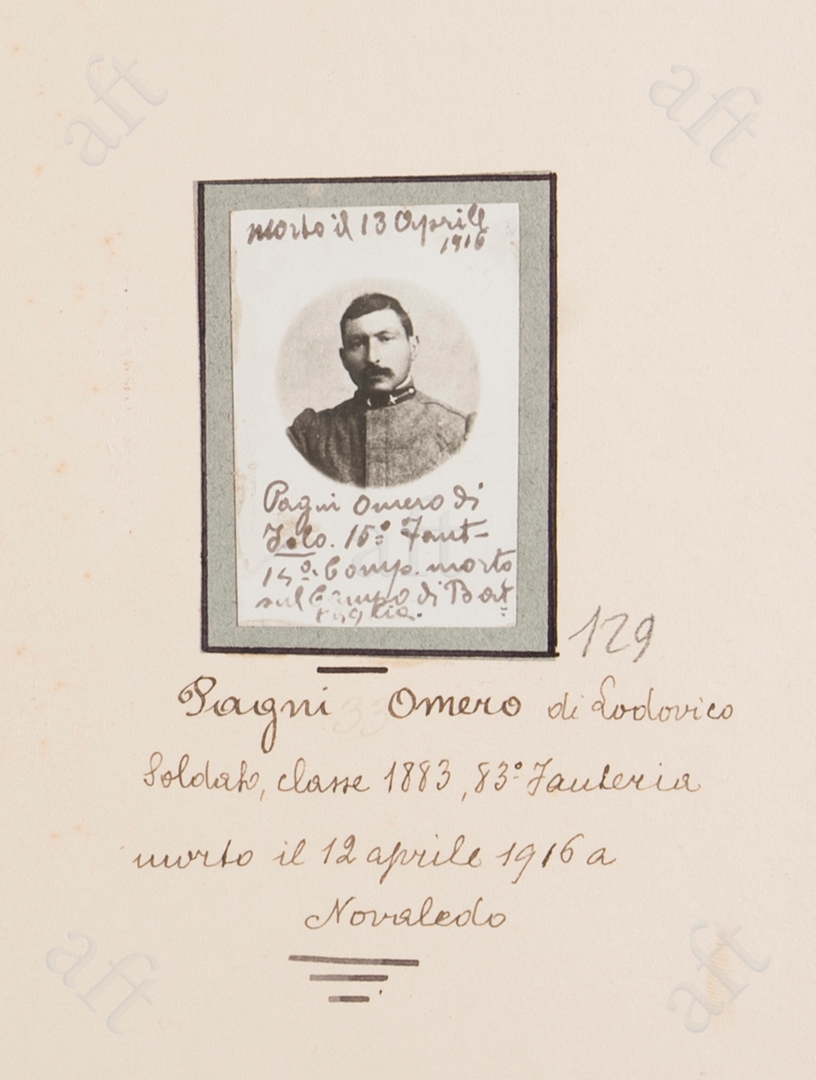 morto il 13 Aprile
1916
Pagni Omero di
Jolo. 15º Fant-
15ª Comp. morto
sul Campo di Bat=
taglia.
129
Pagni Omero di Lodovico
Soldato, classe 1883, 83º Fanteria
morto il 12 aprile 1916 a
Novaledo
aft
aft
aft
aft
aft